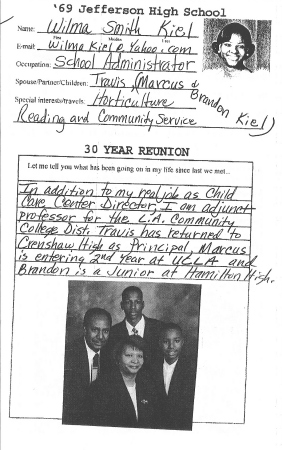 '69 Jefferson High School
Name: Wilma Smith Kiel
First Maiden Last
E-mail Wilma Kiel@Yahoo.com
Occupation: School Administrator
Spouse/Partner/Children: Travis (Marcus & Brandon Kiel)
Special interests/travels: Horticulture
Reading and Community Service
30 YEAR REUNION
Let me tell you what has been going on in my life since last we met...
In addition to my real job as Child
Care Center Director, I am adjunct
professor for the L.A. Community
College Dist. Travis has returned to
Crenshaw High as Principal, Marcus
is entering 2nd year at UCLA and
Brandon is a Junior at Hamilton High.